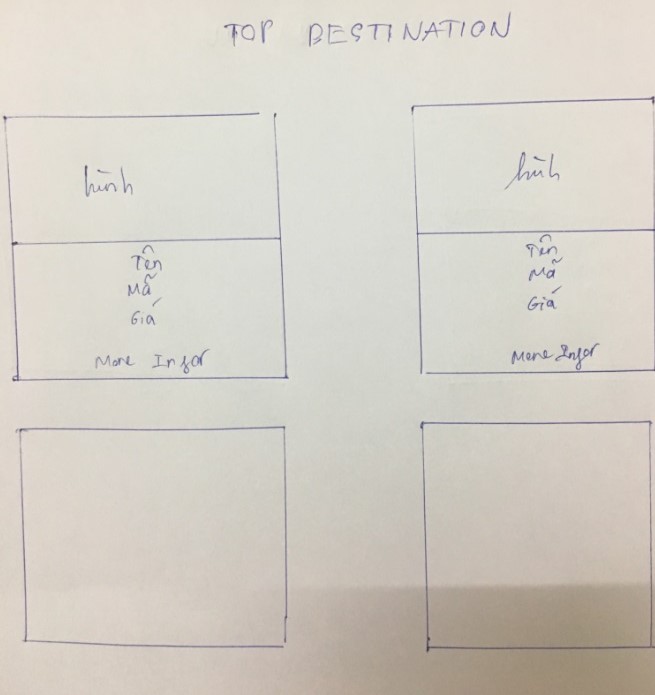 TOP DESTINATION
hình
hình
Tên
Mã
Giá
More Infor
Tên
Mã
Giá
More Infor